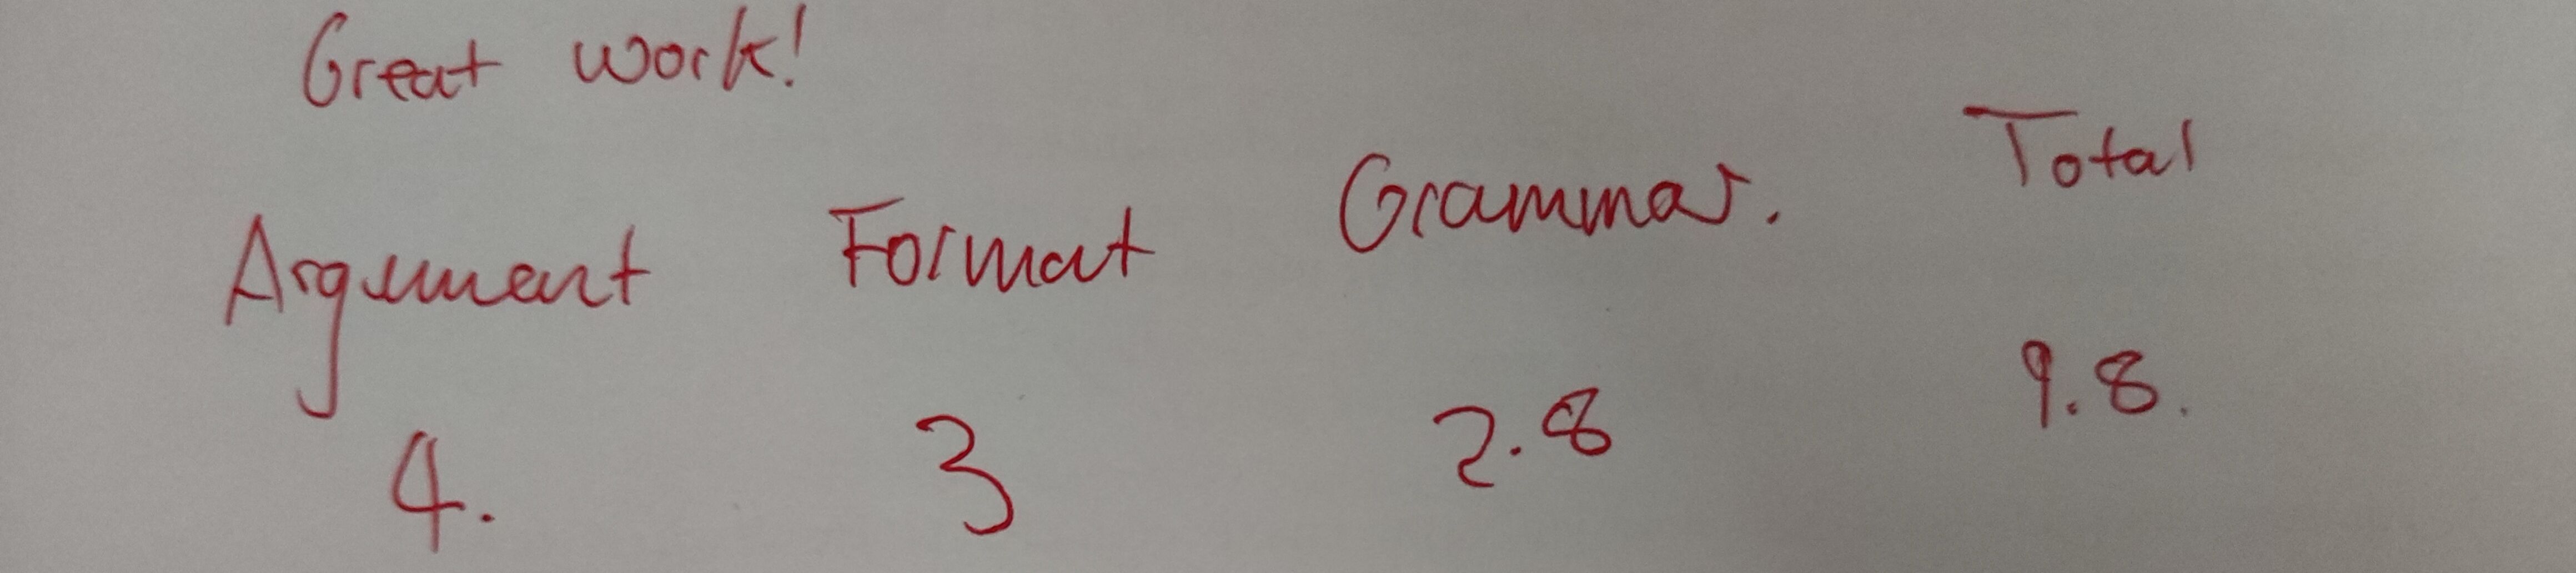 Great work!
Argument Format Grammar. Total
4. 3 2.8 9.8.